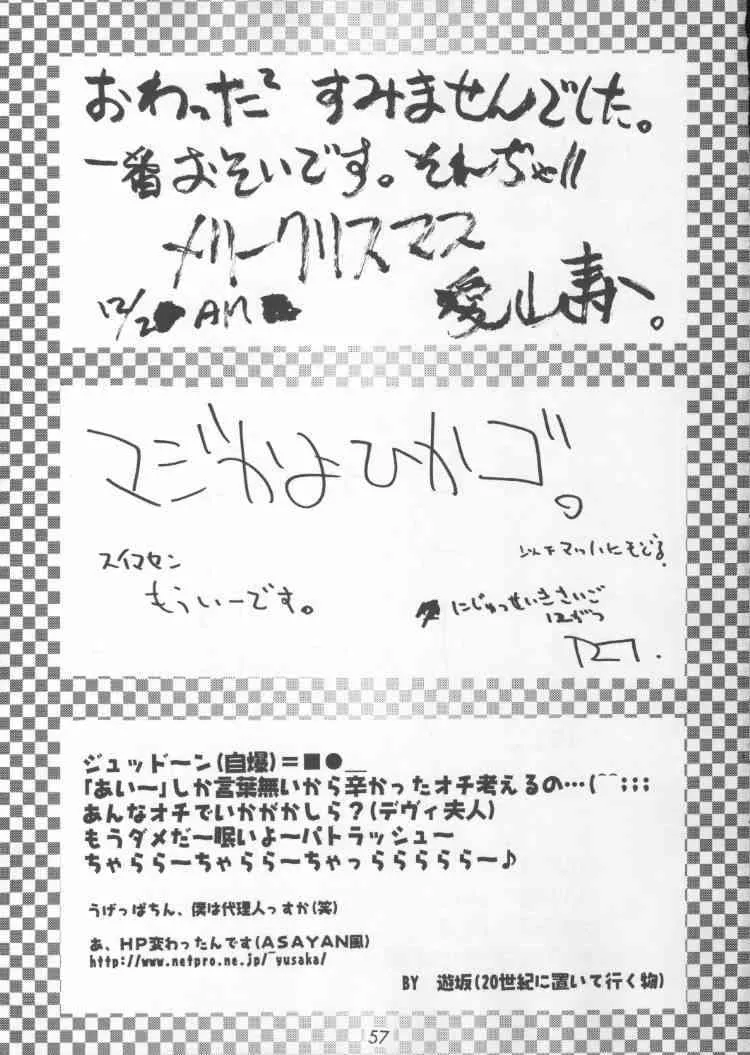 おわった〜 すみませんでした。
一番おそいです。それぢゃ!!
メリークリスマス
12/2 AM 愛山寿へ。
マジかよひかゴ。
スイマセン
もういーです。
にじゅっせいきさいご
12がつ
ジュッドーン(自爆)=■●＿
「あい〜」しか言葉無いから辛かったオチ考えるの…(^^;;;
あんなオチでいかがかしら?(デヴィ夫人)
もうダメだ〜眠いよ〜パトラッシュ〜
ちゃらら〜ちゃらら〜ちゃっらららららら〜♪
うげっぱちん、僕は代理人っすか(笑)
あ、HP変わったんです(ASAYAN風)
http://www.netpro.ne.jp/~yusaka/
BY 遊坂(20世紀に置いて行く物)
57